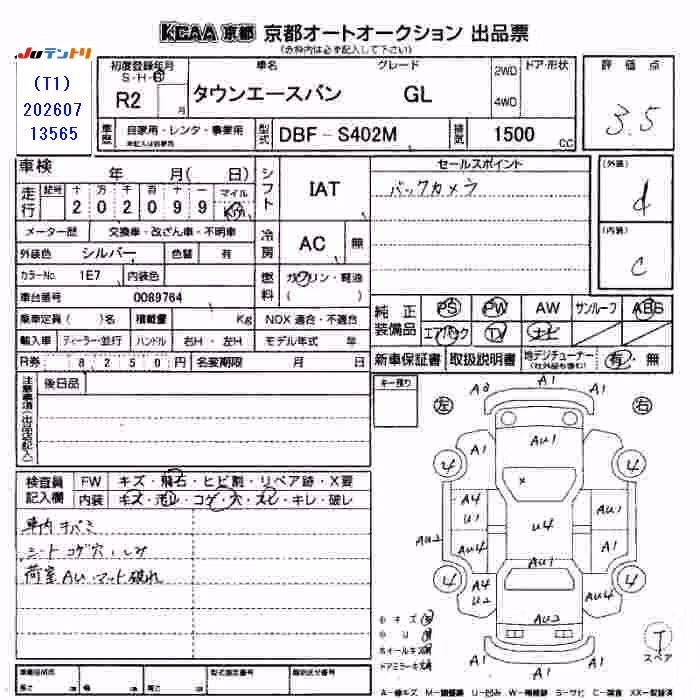 KCAA 京都 京都オートオークション 出品票
(赤枠内は必ず記入して下さい)
JUテントリ
(T1)
202607
13565
初度登録年月 車名 グレード ドア・形状 評価点
S・H・R 2WD
R2 月 タウンエースバン GL 4WD 3.5
車歴 自家用・レンタ・事業用 型式 DBF-S402M 排気 1500 CC
車検 年 月( 日) シフト IAT セールスポイント (外装)
走行 記号 十 万 千 百 十 一 マイル バックカメラ d
2 0 2 0 9 9 Km
メーター歴 交換車・改ざん車・不明車 冷房 AC 無 (内装)
外装色 シルバー 色替 有 C
カラーNo. 1E7 内装色 燃料 ガソリン・軽油
車台番号 0089764 ( )
乗車定員( )名 積載量 Kg NOX 適合・不適合 純正装備品 PS PW AW サンルーフ ABS
輸入車 ディーラー・並行 ハンドル 右H・左H モデル年式 年 エアバック TV ナビ
R券 8250円 名変期限 月 日 新車保証書 取扱説明書 地デジチューナー 有・無
注意事項(出品店記入) 後日品 キー預り
左 右
A3 A1 A1
A1 AU1 A1
4 4
A4 U1 U4 AU1
AU2 AU4 A1 A1
A4 U2 AU4
4 4
AU2
A1 A1 A1
検査員記入欄 FW キズ・飛石・ヒビ割・リペア跡・X要
内装 キズ・汚レ・コゲ・穴・スレ・キレ・破レ
車内キバミ
シートコゲ穴、しみ
荷室AU マット破れ
キズ
ホイールキズ
ドアミラーキズ
T
スペア
車両
長さ cm 幅 cm 高さ cm 型式指定番号 類別区分番号
A-線キズ U-凹み S-サビ C-腐食 XX-取替済